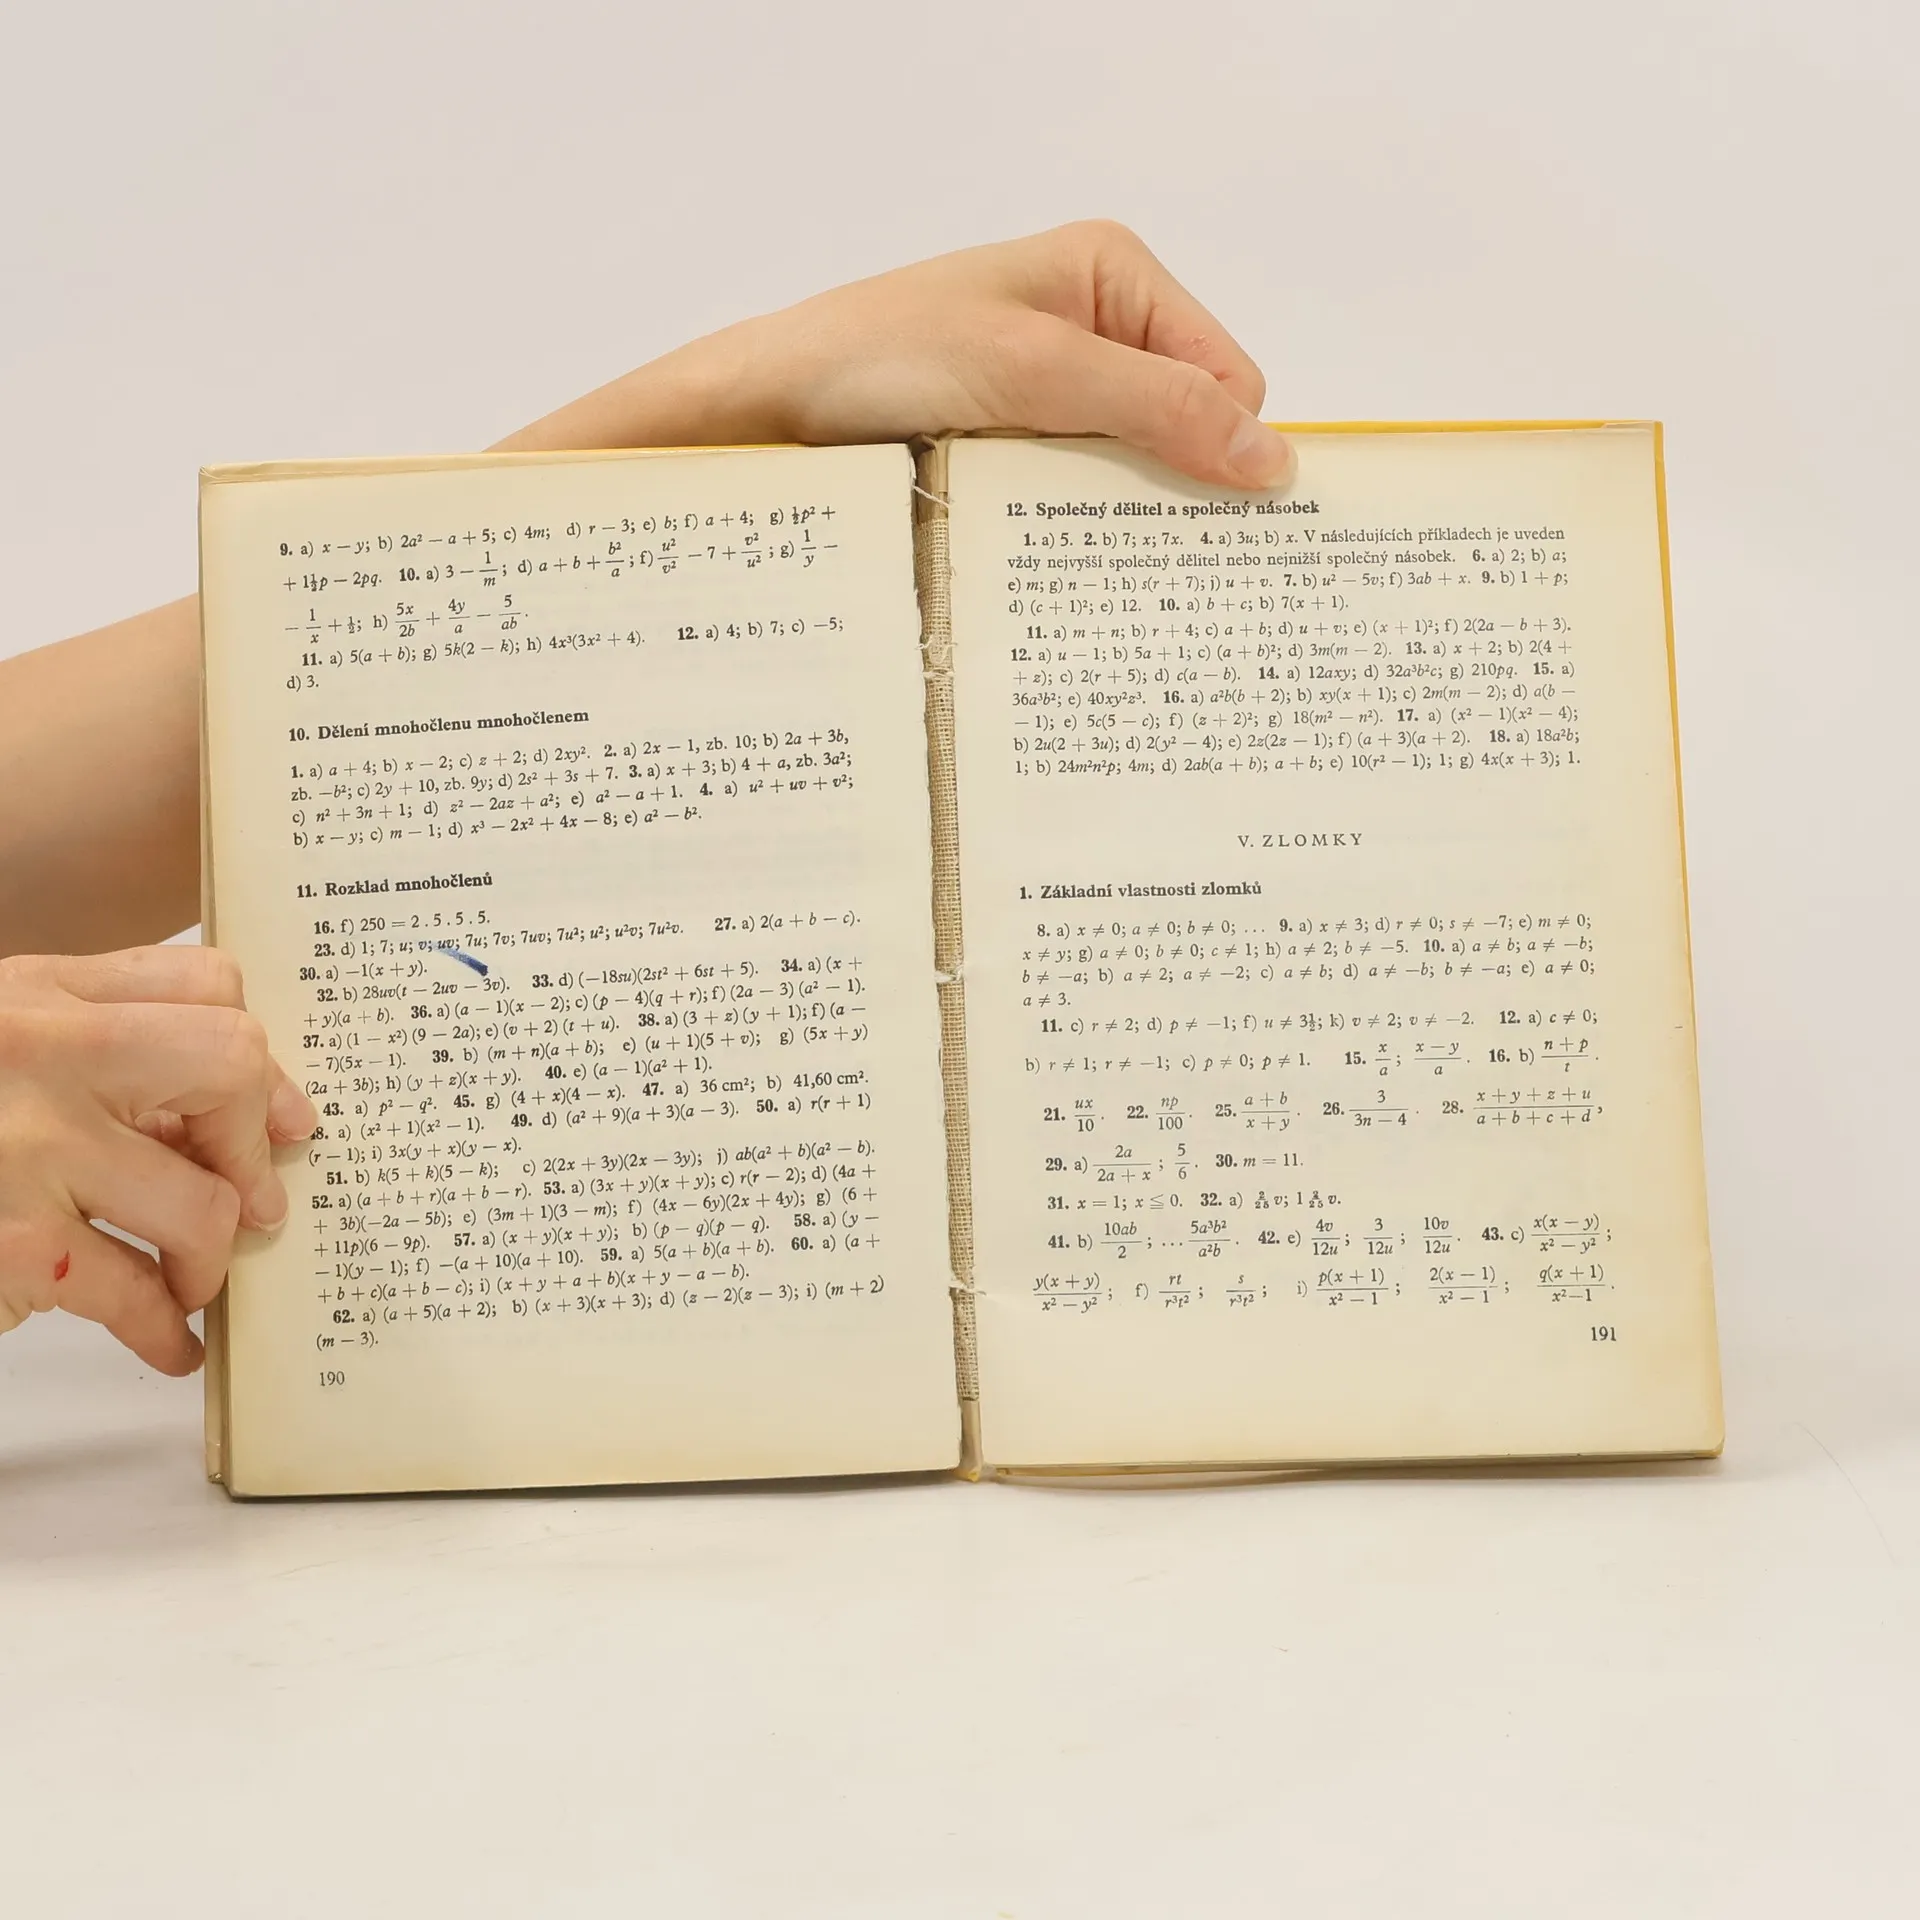 9. a) x — y; b) 2a² — a + 5; c) 4m; d) r — 3; e) b; f) a + 4; g) ½p² +
+ 1½p — 2pq. 10. a) 3 — 1/m; d) a + b + b²/a; f) u²/v² — 7 + v²/u²; g) 1/y —
— 1/x + ½; h) 5x/2b + 4y/a — 5/ab.
11. a) 5(a + b); g) 5k(2 — k); h) 4x³(3x² + 4). 12. a) 4; b) 7; c) —5;
d) 3.
10. Dělení mnohočlenu mnohočlenem
1. a) a + 4; b) x — 2; c) z + 2; d) 2xy². 2. a) 2x — 1, zb. 10; b) 2a + 3b,
zb. —b²; c) 2y + 10, zb. 9y; d) 2s² + 3s + 7. 3. a) x + 3; b) 4 + a, zb. 3a²;
c) n² + 3n + 1; d) z² — 2az + a²; e) a² — a + 1. 4. a) u² + uv + v²;
b) x — y; c) m — 1; d) x³ — 2x² + 4x — 8; e) a² — b².
11. Rozklad mnohočlenů
16. f) 250 = 2 . 5 . 5 . 5.
23. d) 1; 7; u; v; uv; 7u; 7v; 7uv; 7u²; u²; u²v; 7u²v. 27. a) 2(a + b — c).
30. a) —1(x + y).
32. b) 28uv(t — 2uv — 3v). 33. d) (—18su)(2st² + 6st + 5). 34. a) (x +
+ y)(a + b). 36. a) (a — 1)(x — 2); c) (p — 4)(q + r); f) (2a — 3) (a² — 1).
37. a) (1 — x²) (9 — 2a); e) (v + 2) (t + u). 38. a) (3 + z) (y + 1); f) (a —
— 7)(5x — 1). 39. b) (m + n)(a + b); e) (u + 1)(5 + v); g) (5x + y)
(2a + 3b); h) (y + z)(x + y). 40. e) (a — 1)(a² + 1).
43. a) p² — q². 45. g) (4 + x)(4 — x). 47. a) 36 cm²; b) 41,60 cm².
48. a) (x² + 1)(x² — 1). 49. d) (a² + 9)(a + 3)(a — 3). 50. a) r(r + 1)
(r — 1); i) 3x(y + x)(y — x).
51. b) k(5 + k)(5 — k); c) 2(2x + 3y)(2x — 3y); j) ab(a² + b)(a² — b).
52. a) (a + b + r)(a + b — r). 53. a) (3x + y)(x + y); c) r(r — 2); d) (4a +
+ 3b)(—2a — 5b); e) (3m + 1)(3 — m); f) (4x — 6y)(2x + 4y); g) (6 +
+ 11p)(6 — 9p). 57. a) (x + y)(x + y); b) (p — q)(p — q). 58. a) (y —
— 1)(y — 1); f) —(a + 10)(a + 10). 59. a) 5(a + b)(a + b). 60. a) (a +
+ b + c)(a + b — c); i) (x + y + a + b)(x + y — a — b).
62. a) (a + 5)(a + 2); b) (x + 3)(x + 3); d) (z — 2)(z — 3); i) (m + 2)
(m — 3).
190
12. Společný dělitel a společný násobek
1. a) 5. 2. b) 7; x; 7x. 4. a) 3u; b) x. V následujících příkladech je uveden
vždy nejvyšší společný dělitel nebo nejnižší společný násobek. 6. a) 2; b) a;
e) m; g) n — 1; h) s(r + 7); j) u + v. 7. b) u² — 5v; f) 3ab + x. 9. b) 1 + p;
d) (c + 1)²; e) 12. 10. a) b + c; b) 7(x + 1).
11. a) m + n; b) r + 4; c) a + b; d) u + v; e) (x + 1)²; f) 2(2a — b + 3).
12. a) u — 1; b) 5a + 1; c) (a + b)²; d) 3m(m — 2). 13. a) x + 2; b) 2(4 +
+ z); c) 2(r + 5); d) c(a — b). 14. a) 12axy; d) 32a³b²c; g) 210pq. 15. a)
36a³b²; e) 40xy²z³. 16. a) a²b(b + 2); b) xy(x + 1); c) 2m(m — 2); d) a(b —
— 1); e) 5c(5 — c); f) (z + 2)²; g) 18(m² — n²). 17. a) (x² — 1)(x² — 4);
b) 2u(2 + 3u); d) 2(y² — 4); e) 2z(2z — 1); f) (a + 3)(a + 2). 18. a) 18a²b;
1; b) 24m²n²p; 4m; d) 2ab(a + b); a + b; e) 10(r² — 1); 1; g) 4x(x + 3); 1.
V. ZLOMKY
1. Základní vlastnosti zlomků
8. a) x ≠ 0; a ≠ 0; b ≠ 0; ... 9. a) x ≠ 3; d) r ≠ 0; s ≠ —7; e) m ≠ 0;
x ≠ y; g) a ≠ 0; b ≠ 0; c ≠ 1; h) a ≠ 2; b ≠ —5. 10. a) a ≠ b; a ≠ —b;
b ≠ —a; b) a ≠ 2; a ≠ —2; c) a ≠ b; d) a ≠ —b; b ≠ —a; e) a ≠ 0;
a ≠ 3.
11. c) r ≠ 2; d) p ≠ —1; f) u ≠ 3½; k) v ≠ 2; v ≠ —2. 12. a) c ≠ 0;
b) r ≠ 1; r ≠ —1; c) p ≠ 0; p ≠ 1. 15. x/a; (x — y)/a. 16. b) (n + p)/t.
21. ux/10. 22. np/100. 25. (a + b)/(x + y). 26. 3/(3n — 4). 28. (x + y + z + u)/(a + b + c + d),
29. a) 2a/(2a + x); 5/6. 30. m = 11.
31. x = 1; x ≦ 0. 32. a) v; 1 v.
41. b) 10ab/2; ... 5a³b²/a²b. 42. e) 4v/12u; 3/12u; 10v/12u. 43. c) x(x — y)/(x² — y²);
y(x + y)/(x² — y²); f) rt/r³t²; s/r³t²; i) p(x + 1)/(x² — 1); 2(x — 1)/(x² — 1); q(x + 1)/(x²—1).
191